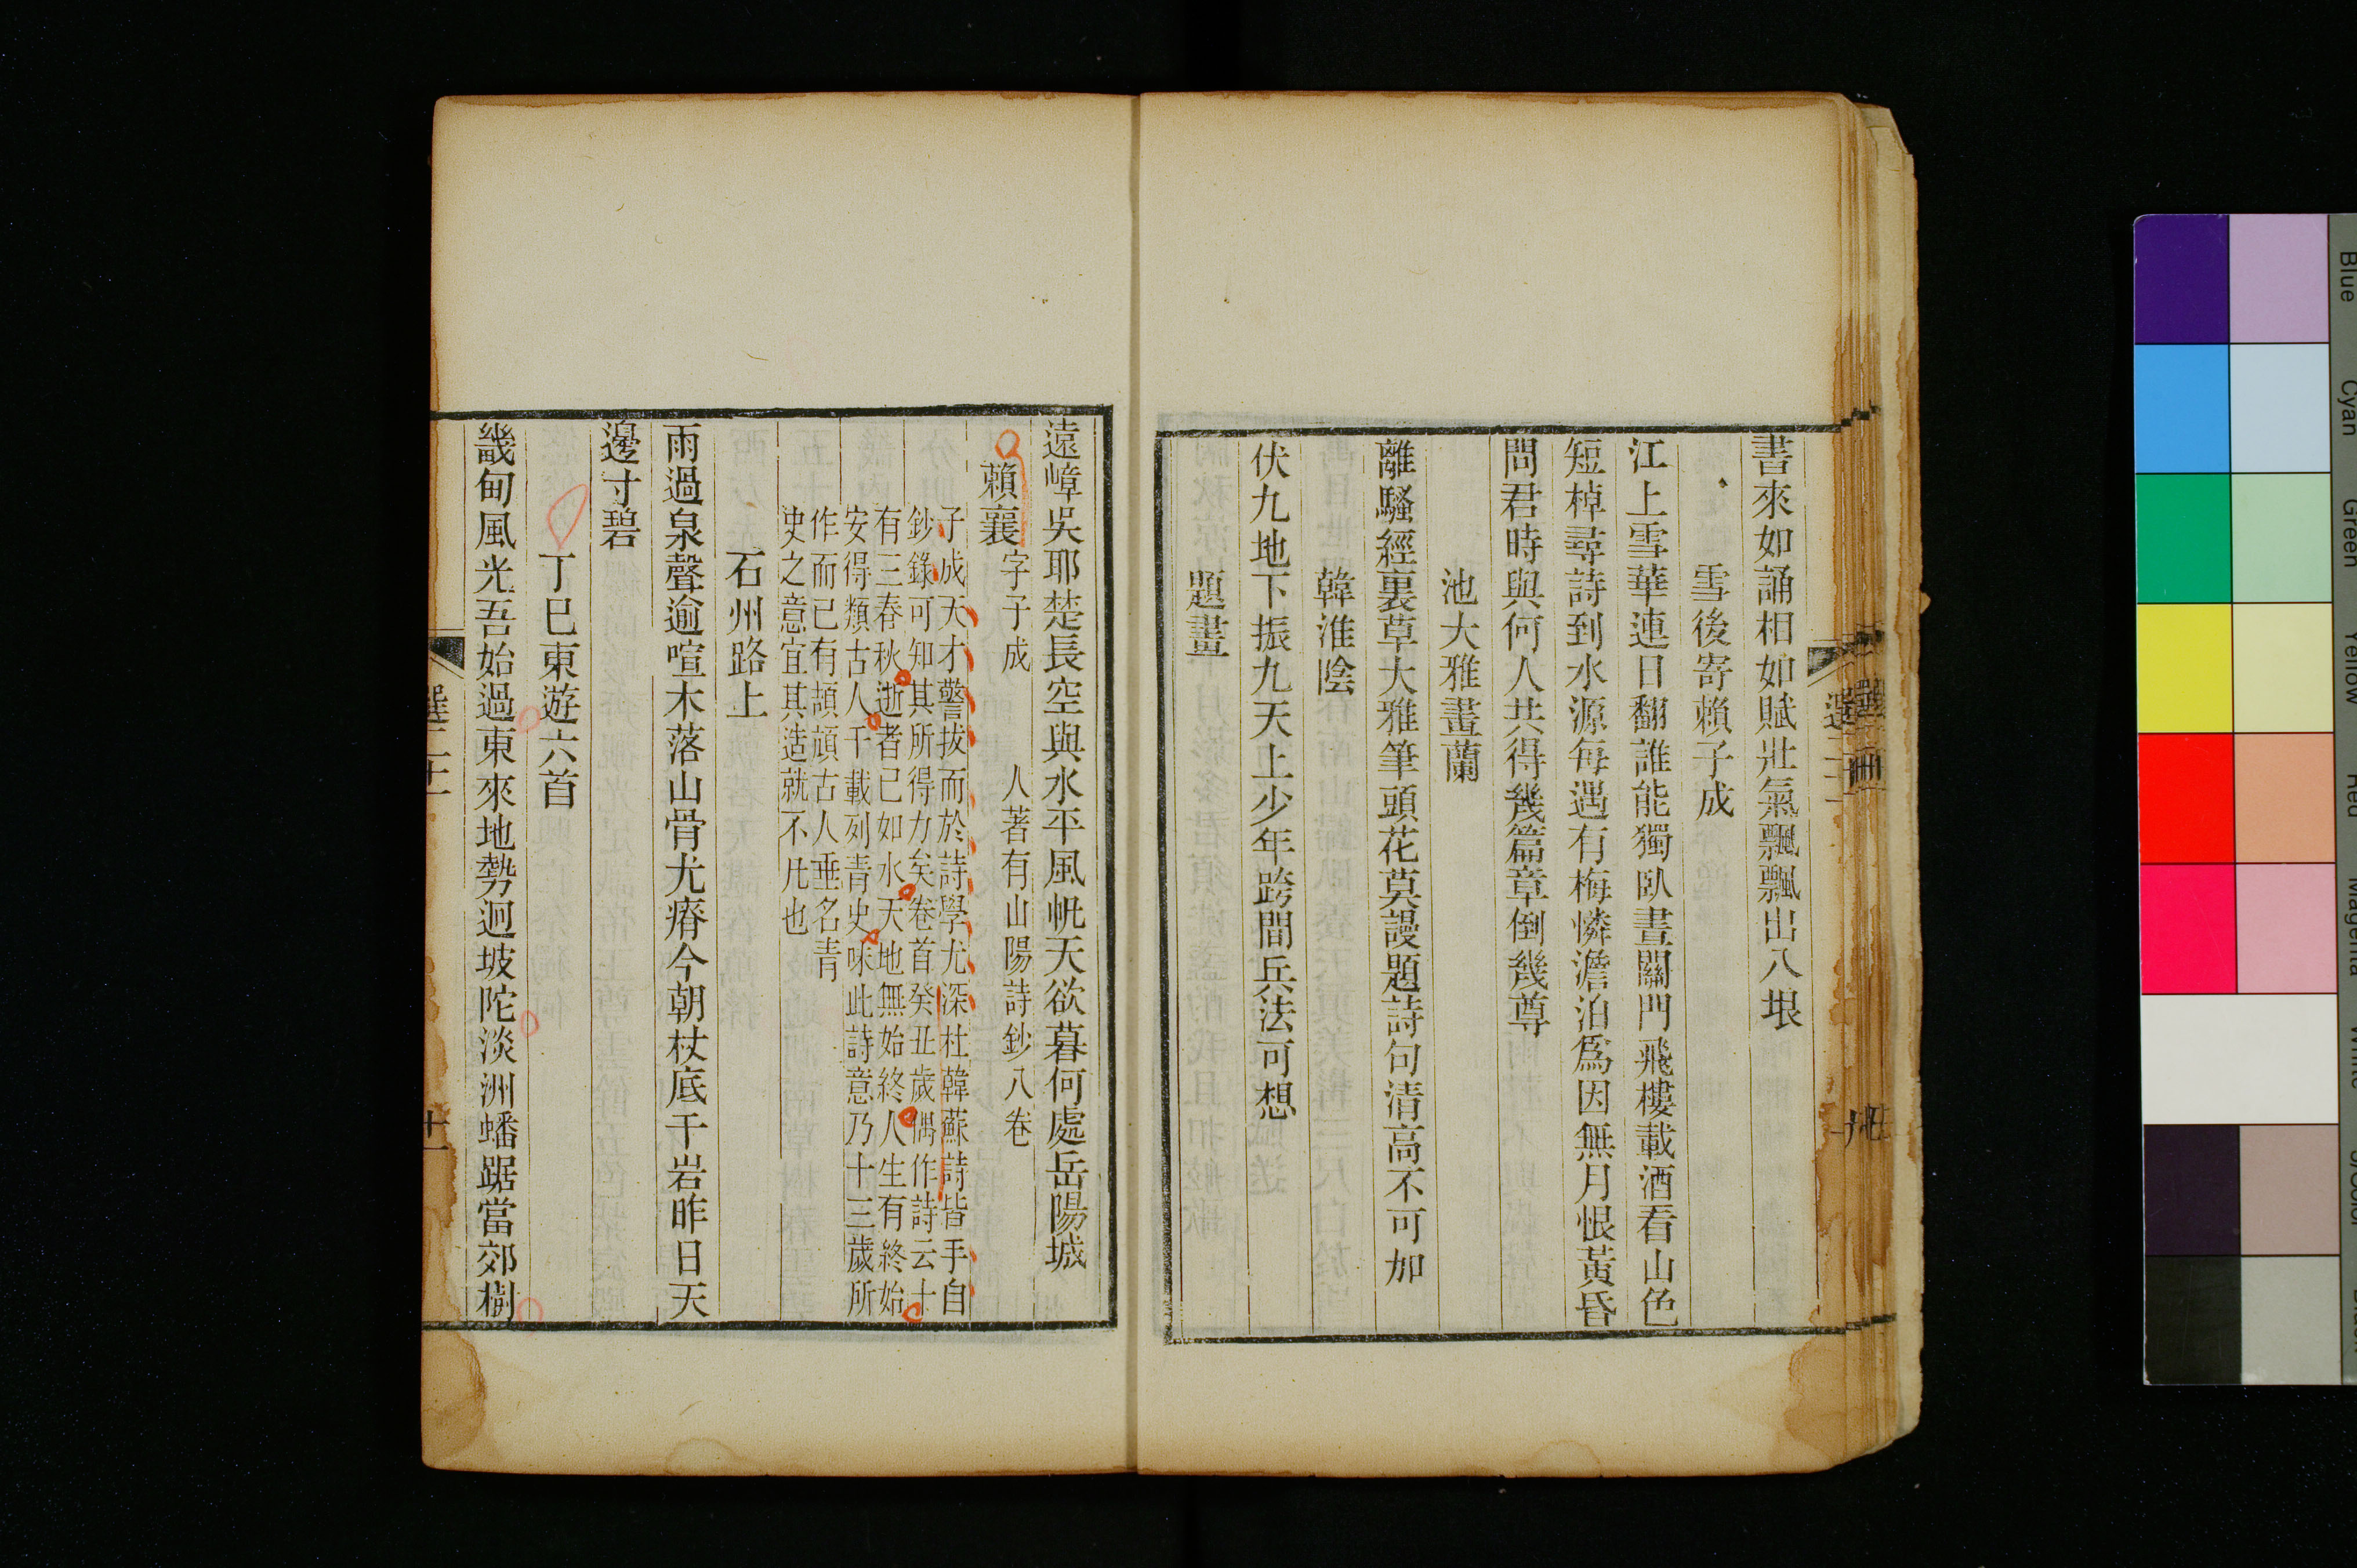 書來如誦相如賦壯氣飄飄出八垠
雪後寄賴子成
江上雪華連日翻誰能獨臥晝關門飛樓載酒看山色
短棹尋詩到水源每遇有梅憐澹泊爲因無月恨黃昏
問君時與何人共得幾篇章倒幾尊
池大雅畫蘭
離騷經裏草大雅筆頭花莫謾題詩句清高不可加
韓淮陰
伏九地下振九天上少年跨間兵法可想
題畫
遠嶂吳耶楚長空與水平風帆天欲暮何處岳陽城
賴襄 字子成 人著有山陽詩鈔八卷
子成天才警拔而於詩學尤深杜韓蘇詩皆手自
鈔錄可知其所得力矣卷首癸丑歲偶作詩云十
有三春秋逝者已如水天地無始終人生有終始
安得類古人千載列青史味此詩意乃十三歲所
作而已有頡頏古人垂名青
史之意宜其造就不凡也
石州路上
雨過泉聲逾喧木落山骨尤瘠今朝杖底千岩昨日天
邊寸碧
丁巳東遊六首
畿甸風光吾始過東來地勢迥坡陀淡洲蟠踞當郊樹
選二十一
十一
Blue
Cyan
Green
Yellow
Red
Magenta
White
3/Color
Black